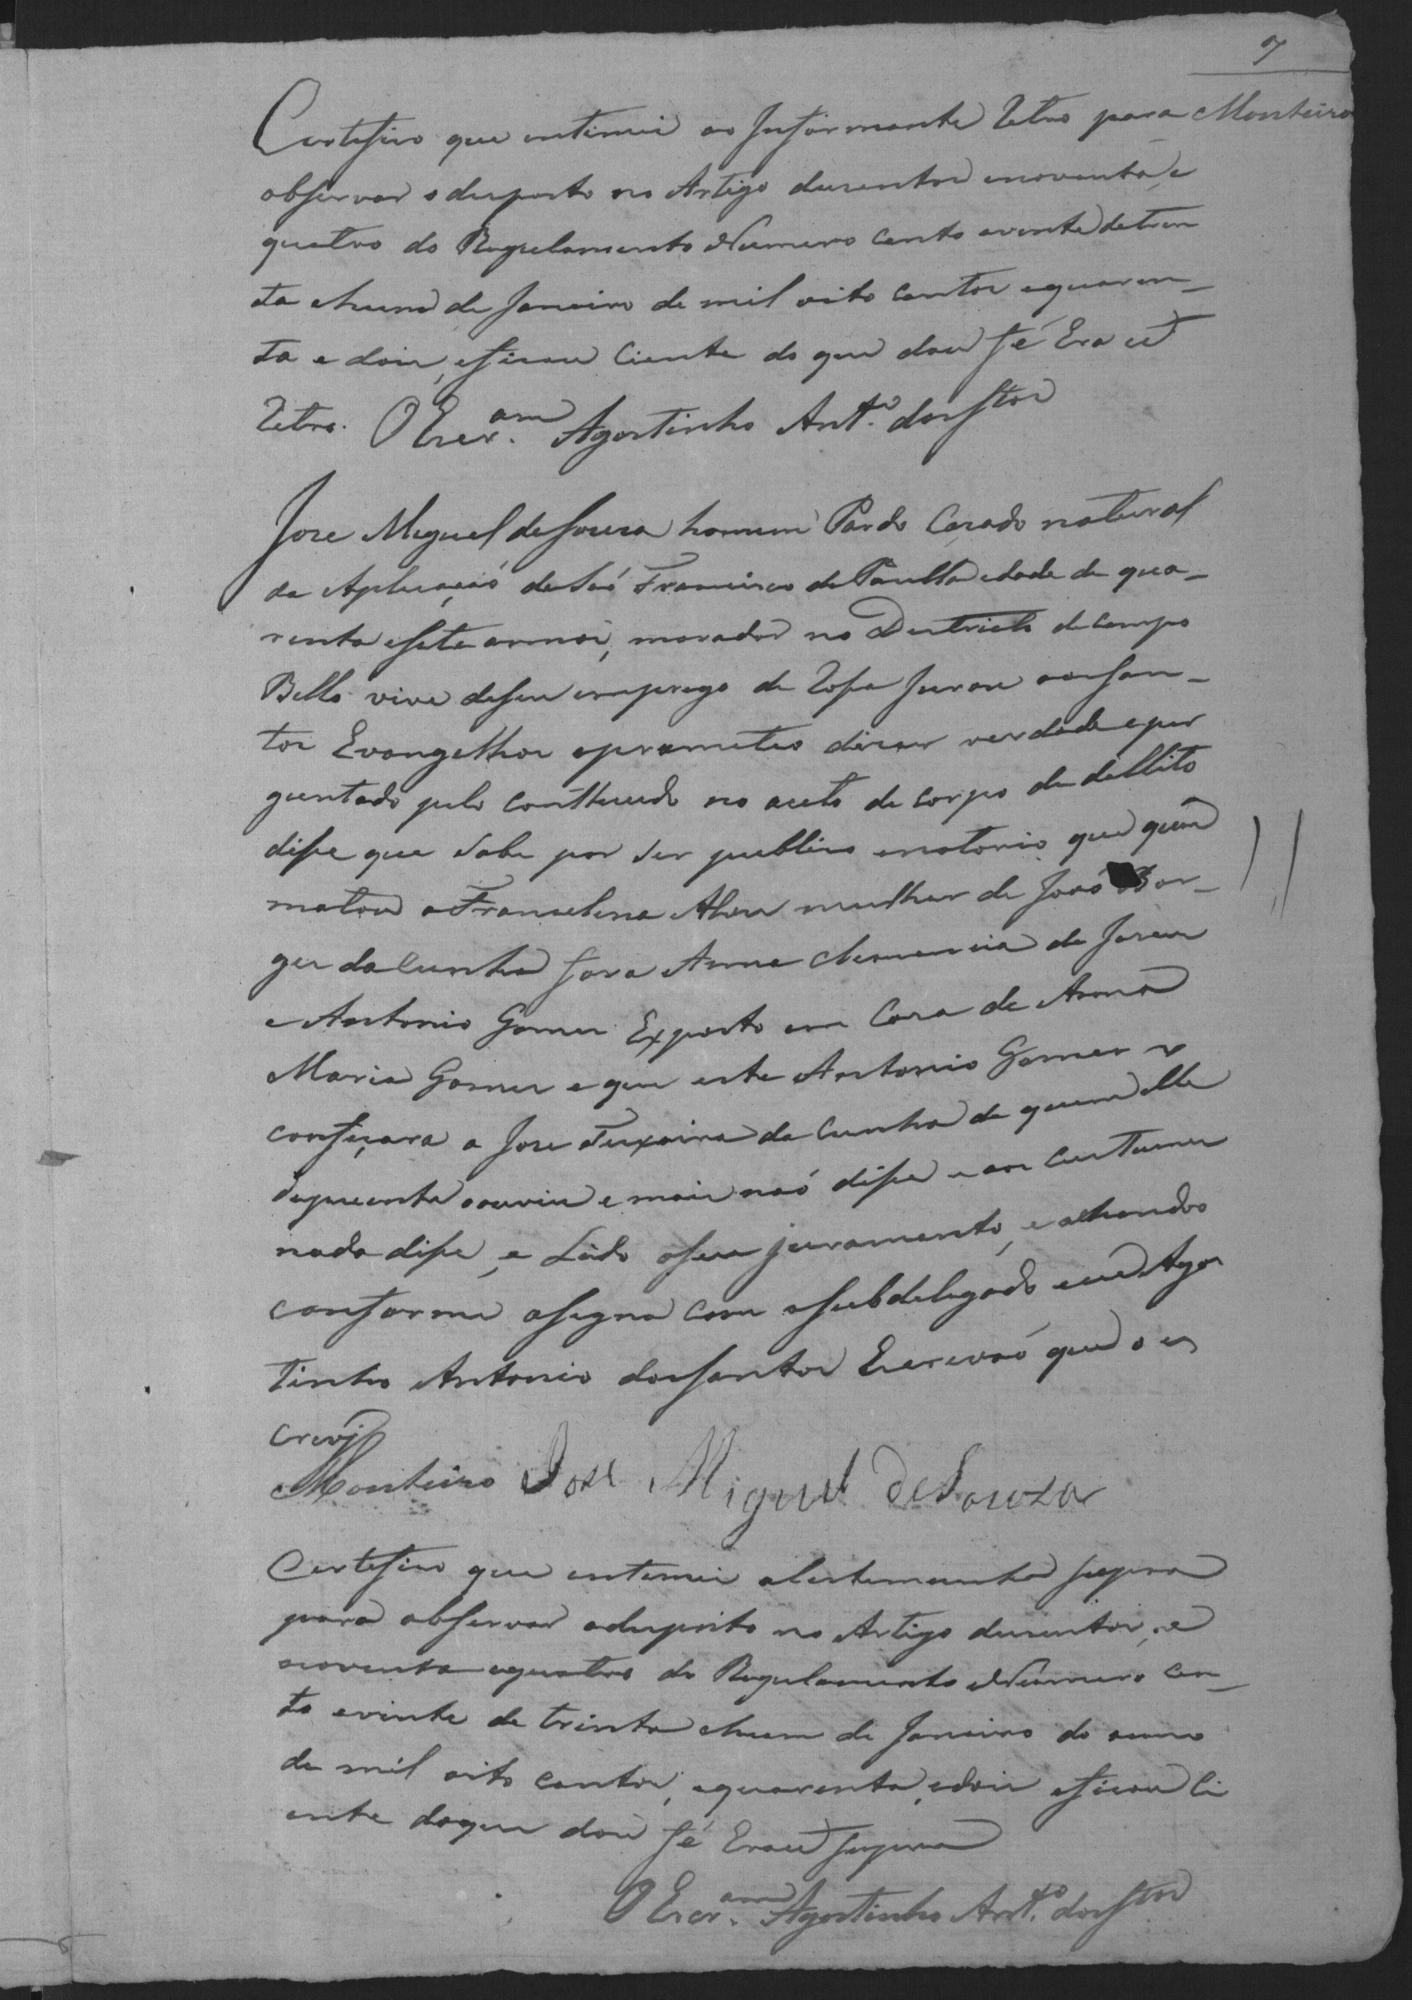 7
Monteiro
Certifico que entimei ao Informante Retro para
observar o desposto no Artigo duzentos enoventa e
quatro do Regulamento Numero cento evinte detrin
ta ehum de Janeiro de mil oito centos equaren_
ta e dois, eficou Ciente do que dou fé Era ut
Retro. O Escr.am Agostinho Ant.o dos Stos
Jose Miguel deSouza homem Pardo Cazado natural
da Aplicação de São Francisco de Paulla edade de qua_
renta esete annos, morador no Destricto de Campo
Bello vive deseu emprego de Rossa Jurou aos San_
tos Evangelhos eprometeo dizer verdade eper
guntado pelo conttheudo no auto de corpo de dellito
disse que Sabe por ser publico enotorio que quem
matou a Francelina Alves mulher de João Bor_
ges da Cunha fora Anna Clemencia de Jesus
e Antonio Gomes Exposto em Caza de Anna
Maria Gomes e que este Antonio Gomes o
confeçara a Jose Teixeira da Cunha de quem elle
depuente o ouviu e mais não disse e aos custumes
nada disse, e Lido oseu juramento, e achandoo
conforme assigna com oSubdelegado eeu Agos
tinho Antonio dos Santos Escrevão que o es
crevj
Monteiro Jose Miguel de Souza
Certifico que entemei atestemunha supra
para observar o desposto no Artigo duzentos, e
noventa equatro do Regulamento Numero cen_
to evinte de trinta ehum de Janeiro do anno
de mil oito centos, equarenta, edois eficou Ci
ente doque dou fé Eraut supra
O Escr.am Agostinho Ant.o dos Stos